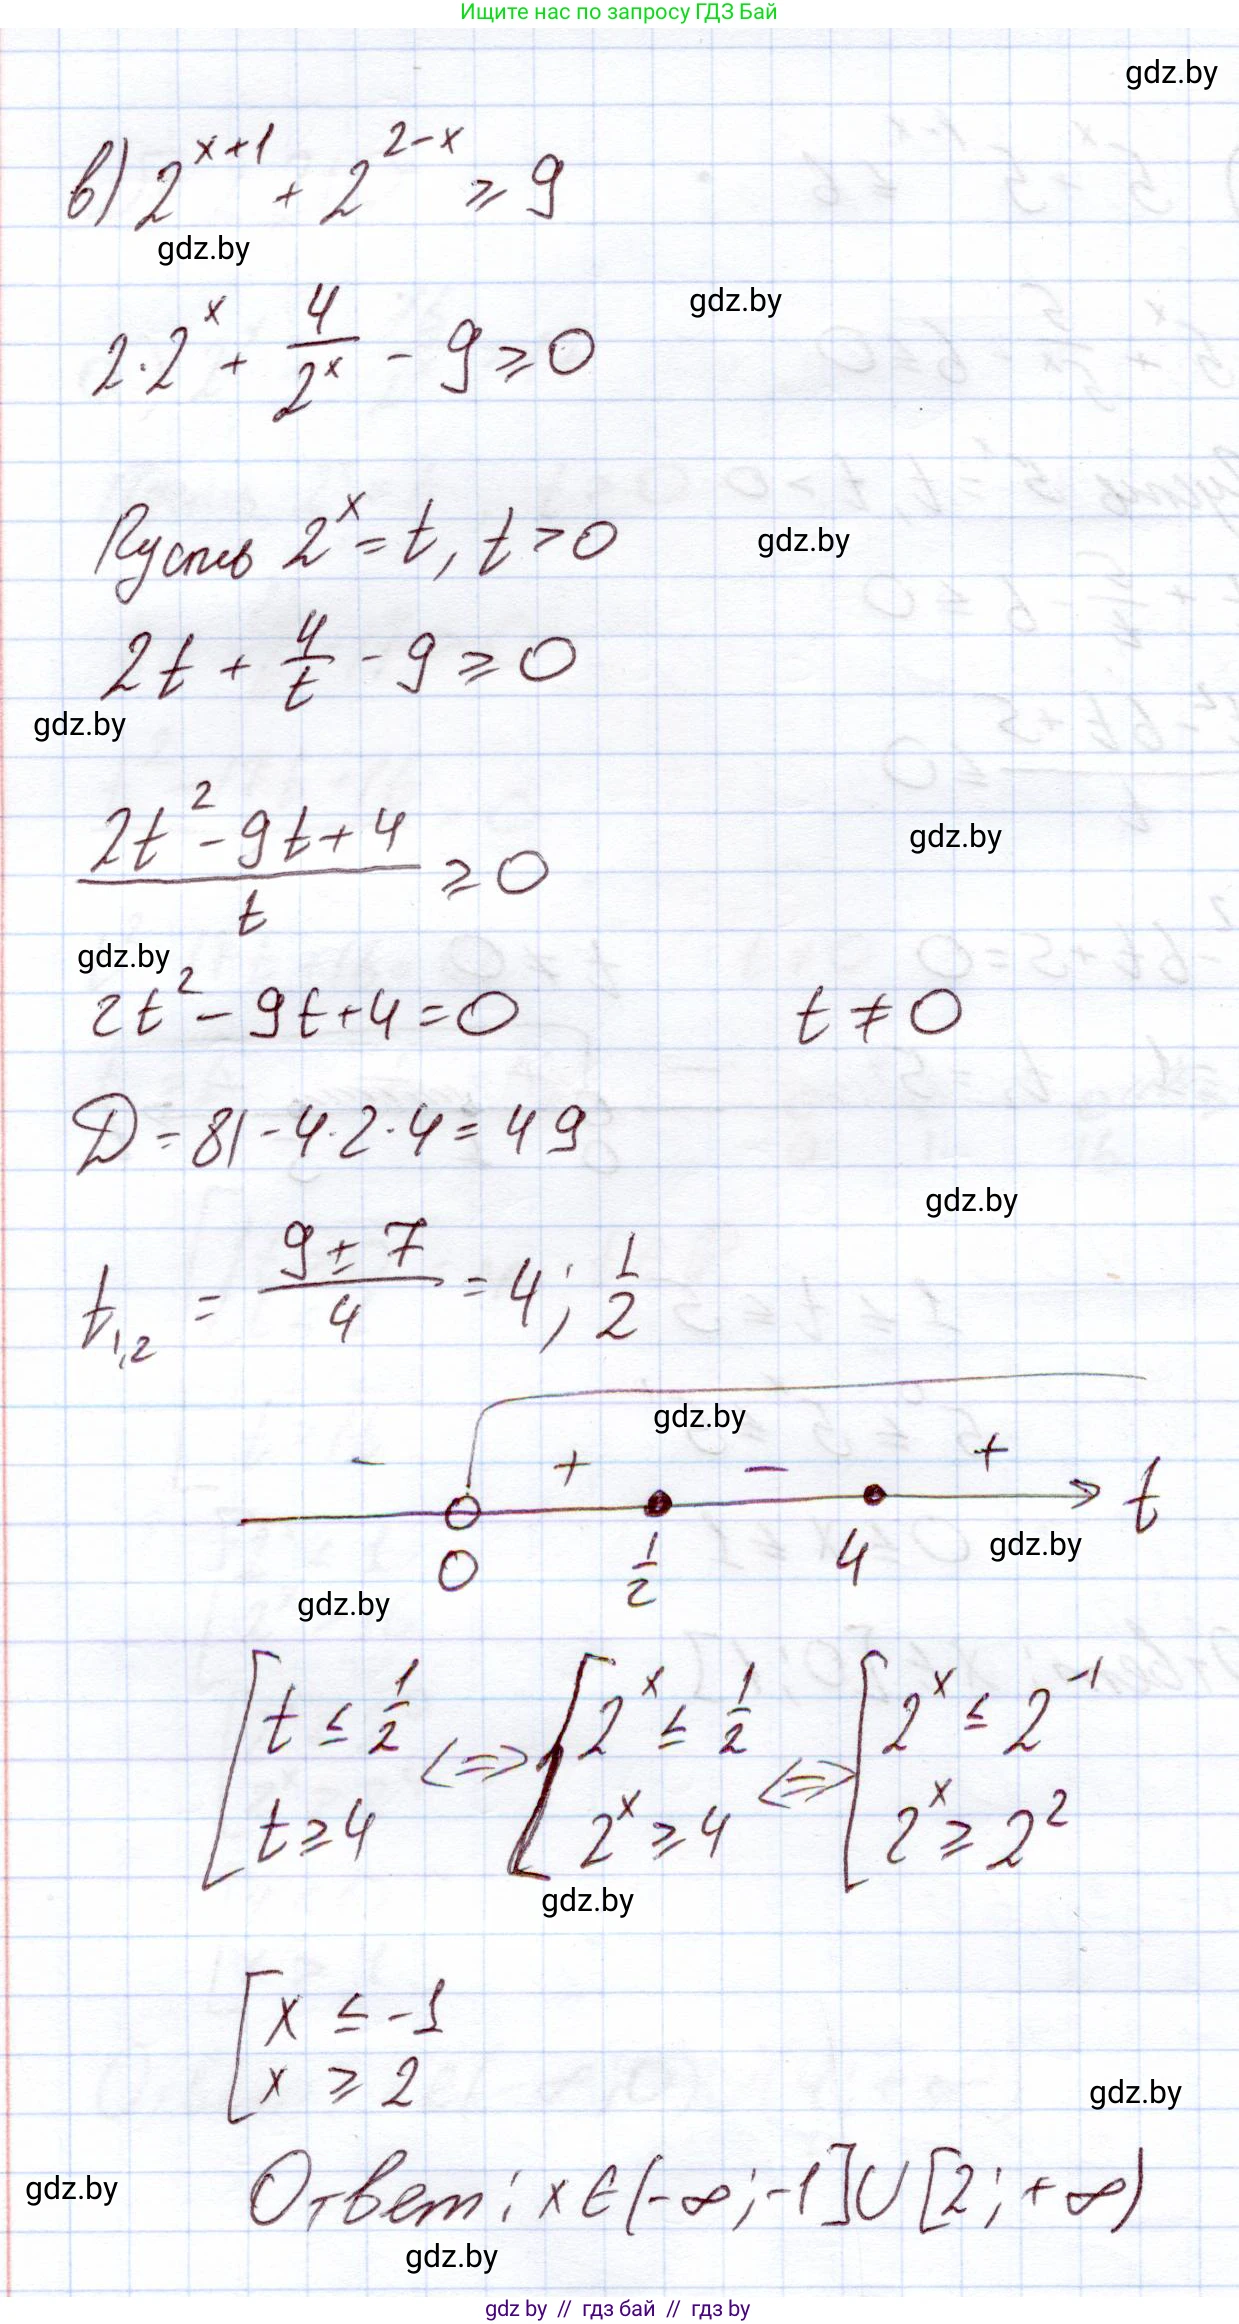 Ищите нас по запросу ГДЗ Бай
gdz.by
в) 2^{x+1} + 2^{2-x} ≥ 9
gdz.by
gdz.by
2·2^x + 4/2^x - 9 ≥ 0
Пусть 2^x = t, t > 0
gdz.by
2t + 4/t - 9 ≥ 0
gdz.by
(2t^2 - 9t + 4)/t ≥ 0
gdz.by
gdz.by
2t^2 - 9t + 4 = 0 t ≠ 0
D = 81 - 4·2·4 = 49
gdz.by
t_{1,2} = (9 ± 7)/4 = 4; 1/2
gdz.by
- + - + t
0 1/2 4
gdz.by
gdz.by
[ t ≤ 1/2 <=> [ 2^x ≤ 1/2 <=> [ 2^x ≤ 2^{-1}
t ≥ 4 2^x ≥ 4 2^x ≥ 2^2
gdz.by
[ x ≤ -1
x ≥ 2
gdz.by
Ответ: x ∈ (-∞; -1] ∪ [2; +∞)
gdz.by
gdz.by
gdz by // гдз бай // гдз by